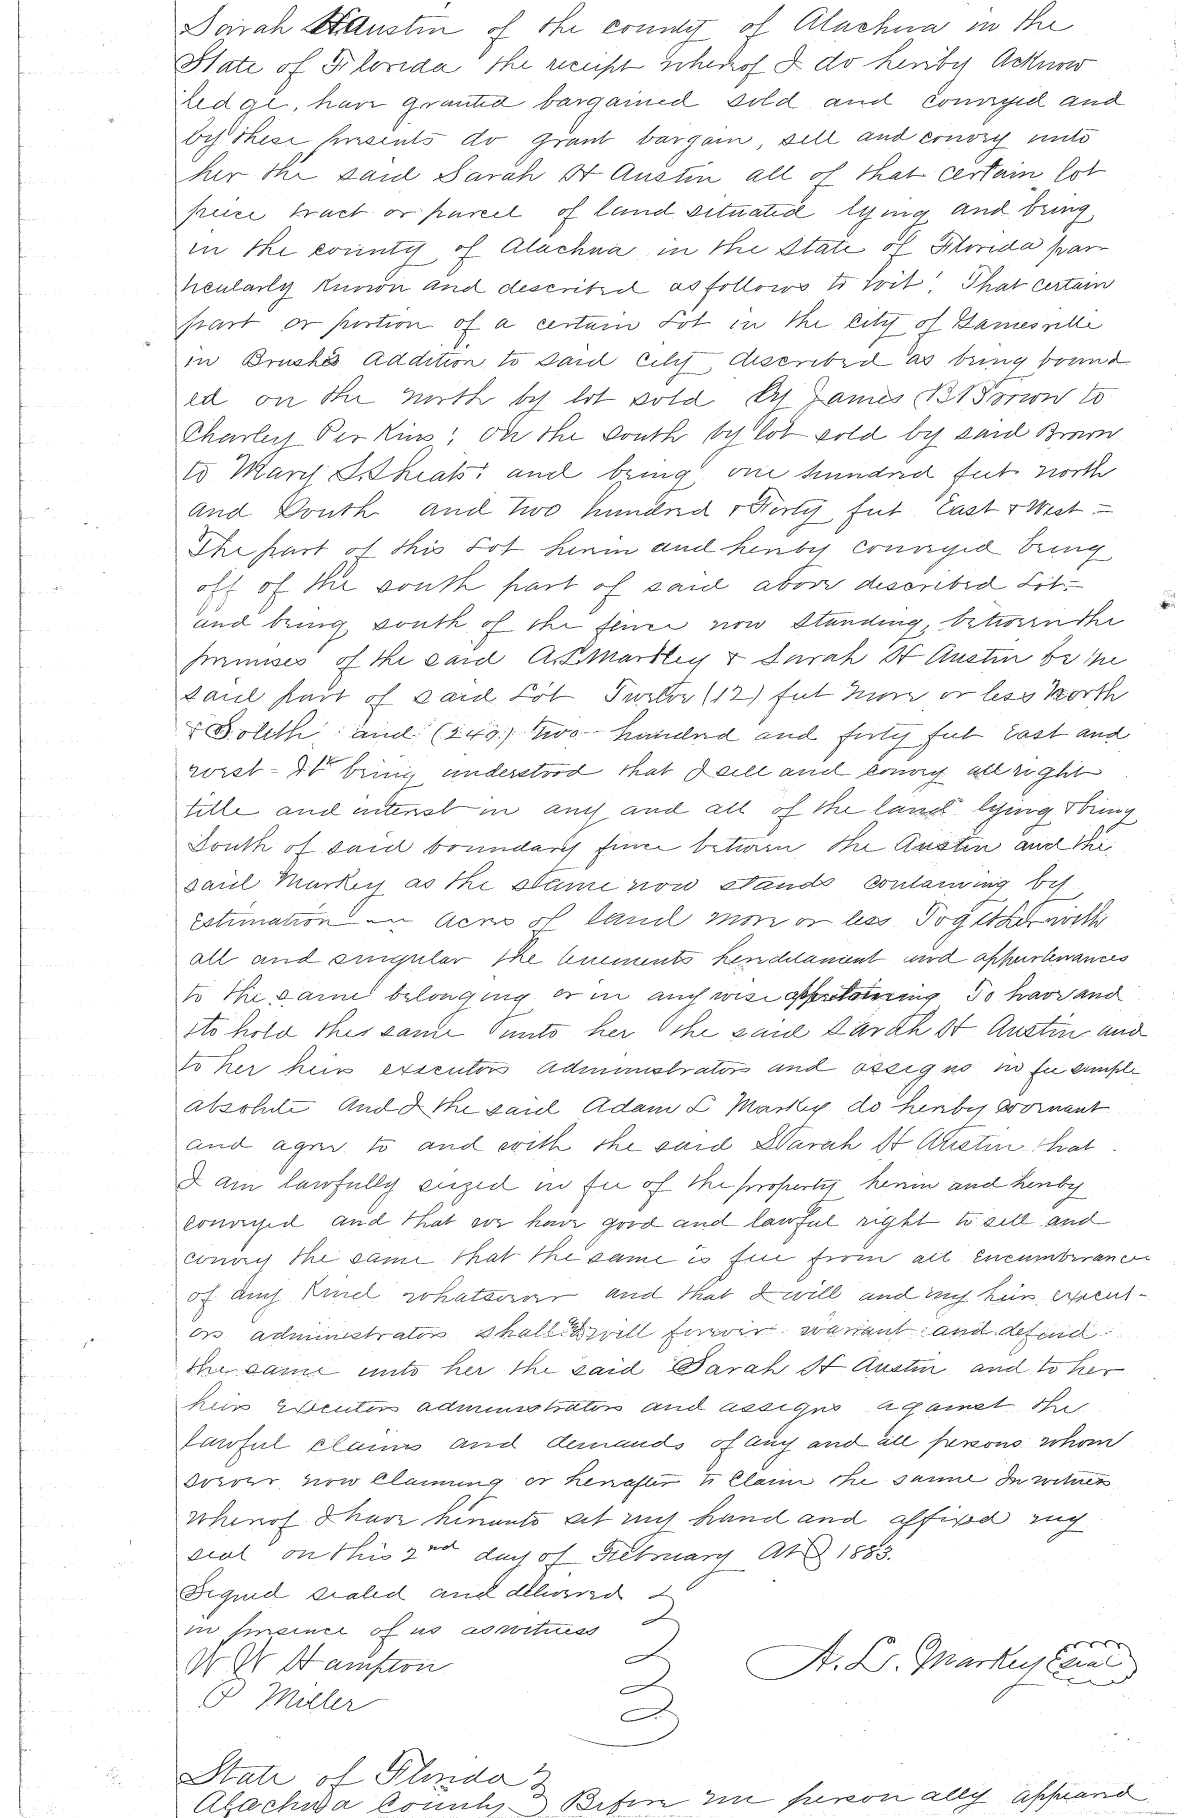 Sarah H Austin of the county of Alachua in the
State of Florida the receipt whereof I do hereby Acknow
ledge, have granted bargained sold and conveyed and
by these presents do grant bargain, sell and convey unto
her the said Sarah H Austin all of that certain lot
peice tract or parcel of land situated lying and being
in the county of Alachua in the State of Florida par-
ticularly known and described as follows to wit: That certain
part or portion of a certain Lot in the City of Gainesville
in Brushs Addition to said City described as being bound
ed on the north by lot sold by James B Brown to
Charley Perkins; On the South by lot sold by said Brown
to Mary S. Sheats: and being one hundred feet north
and South and two hundred & Forty feet East & West -
The part of this Lot herein and hereby conveyed being
off of the south part of said above described Lot -
and being south of the fence now standing, between the
premises of the said A. L. Markey & Sarah H Austin be the
said part of said Lot Twelve (12) feet more or less North
& South and (240) two hundred and forty feet East and
west - It being understood that I sell and convey all right
title and interest in any and all of the land lying & being
South of said boundary fence between the Austin and the
said Markey as the same now stands containing by
Estimation Acres of land more or less Together with
all and singular the tenements hereditament and appurtenances
to the same belonging or in any wise appertaining To have and
to hold the same unto her the said Sarah H Austin and
to her heirs executors administrators and assigns in fee simple
absolute And I the said Adam L Markey do hereby covenant
and agree to and with the said Sarah H Austin that
I am lawfully seized in fee of the property herein and hereby
conveyed and that we have good and lawful right to sell and
convey the same that the same is free from all Encumberances
of any Kind whatsoever and that I will and my heirs execut-
ors administrators shall & will forever warrant and defend
the same unto her the said Sarah H Austin and to her
heirs Executors administrators and assigns against the
lawful claims and demands of any and all persons whom
soever now Claiming or hereafter to Claim the same In witness
whereof I have hereunto set my hand and affixed my
seal on this 2nd day of February AD 1883.
Signed sealed and delivered
in presence of us as witness
W W Hampton A. L. Markey Seal
P Miller
State of Florida
Alachua County Before me personally appeared